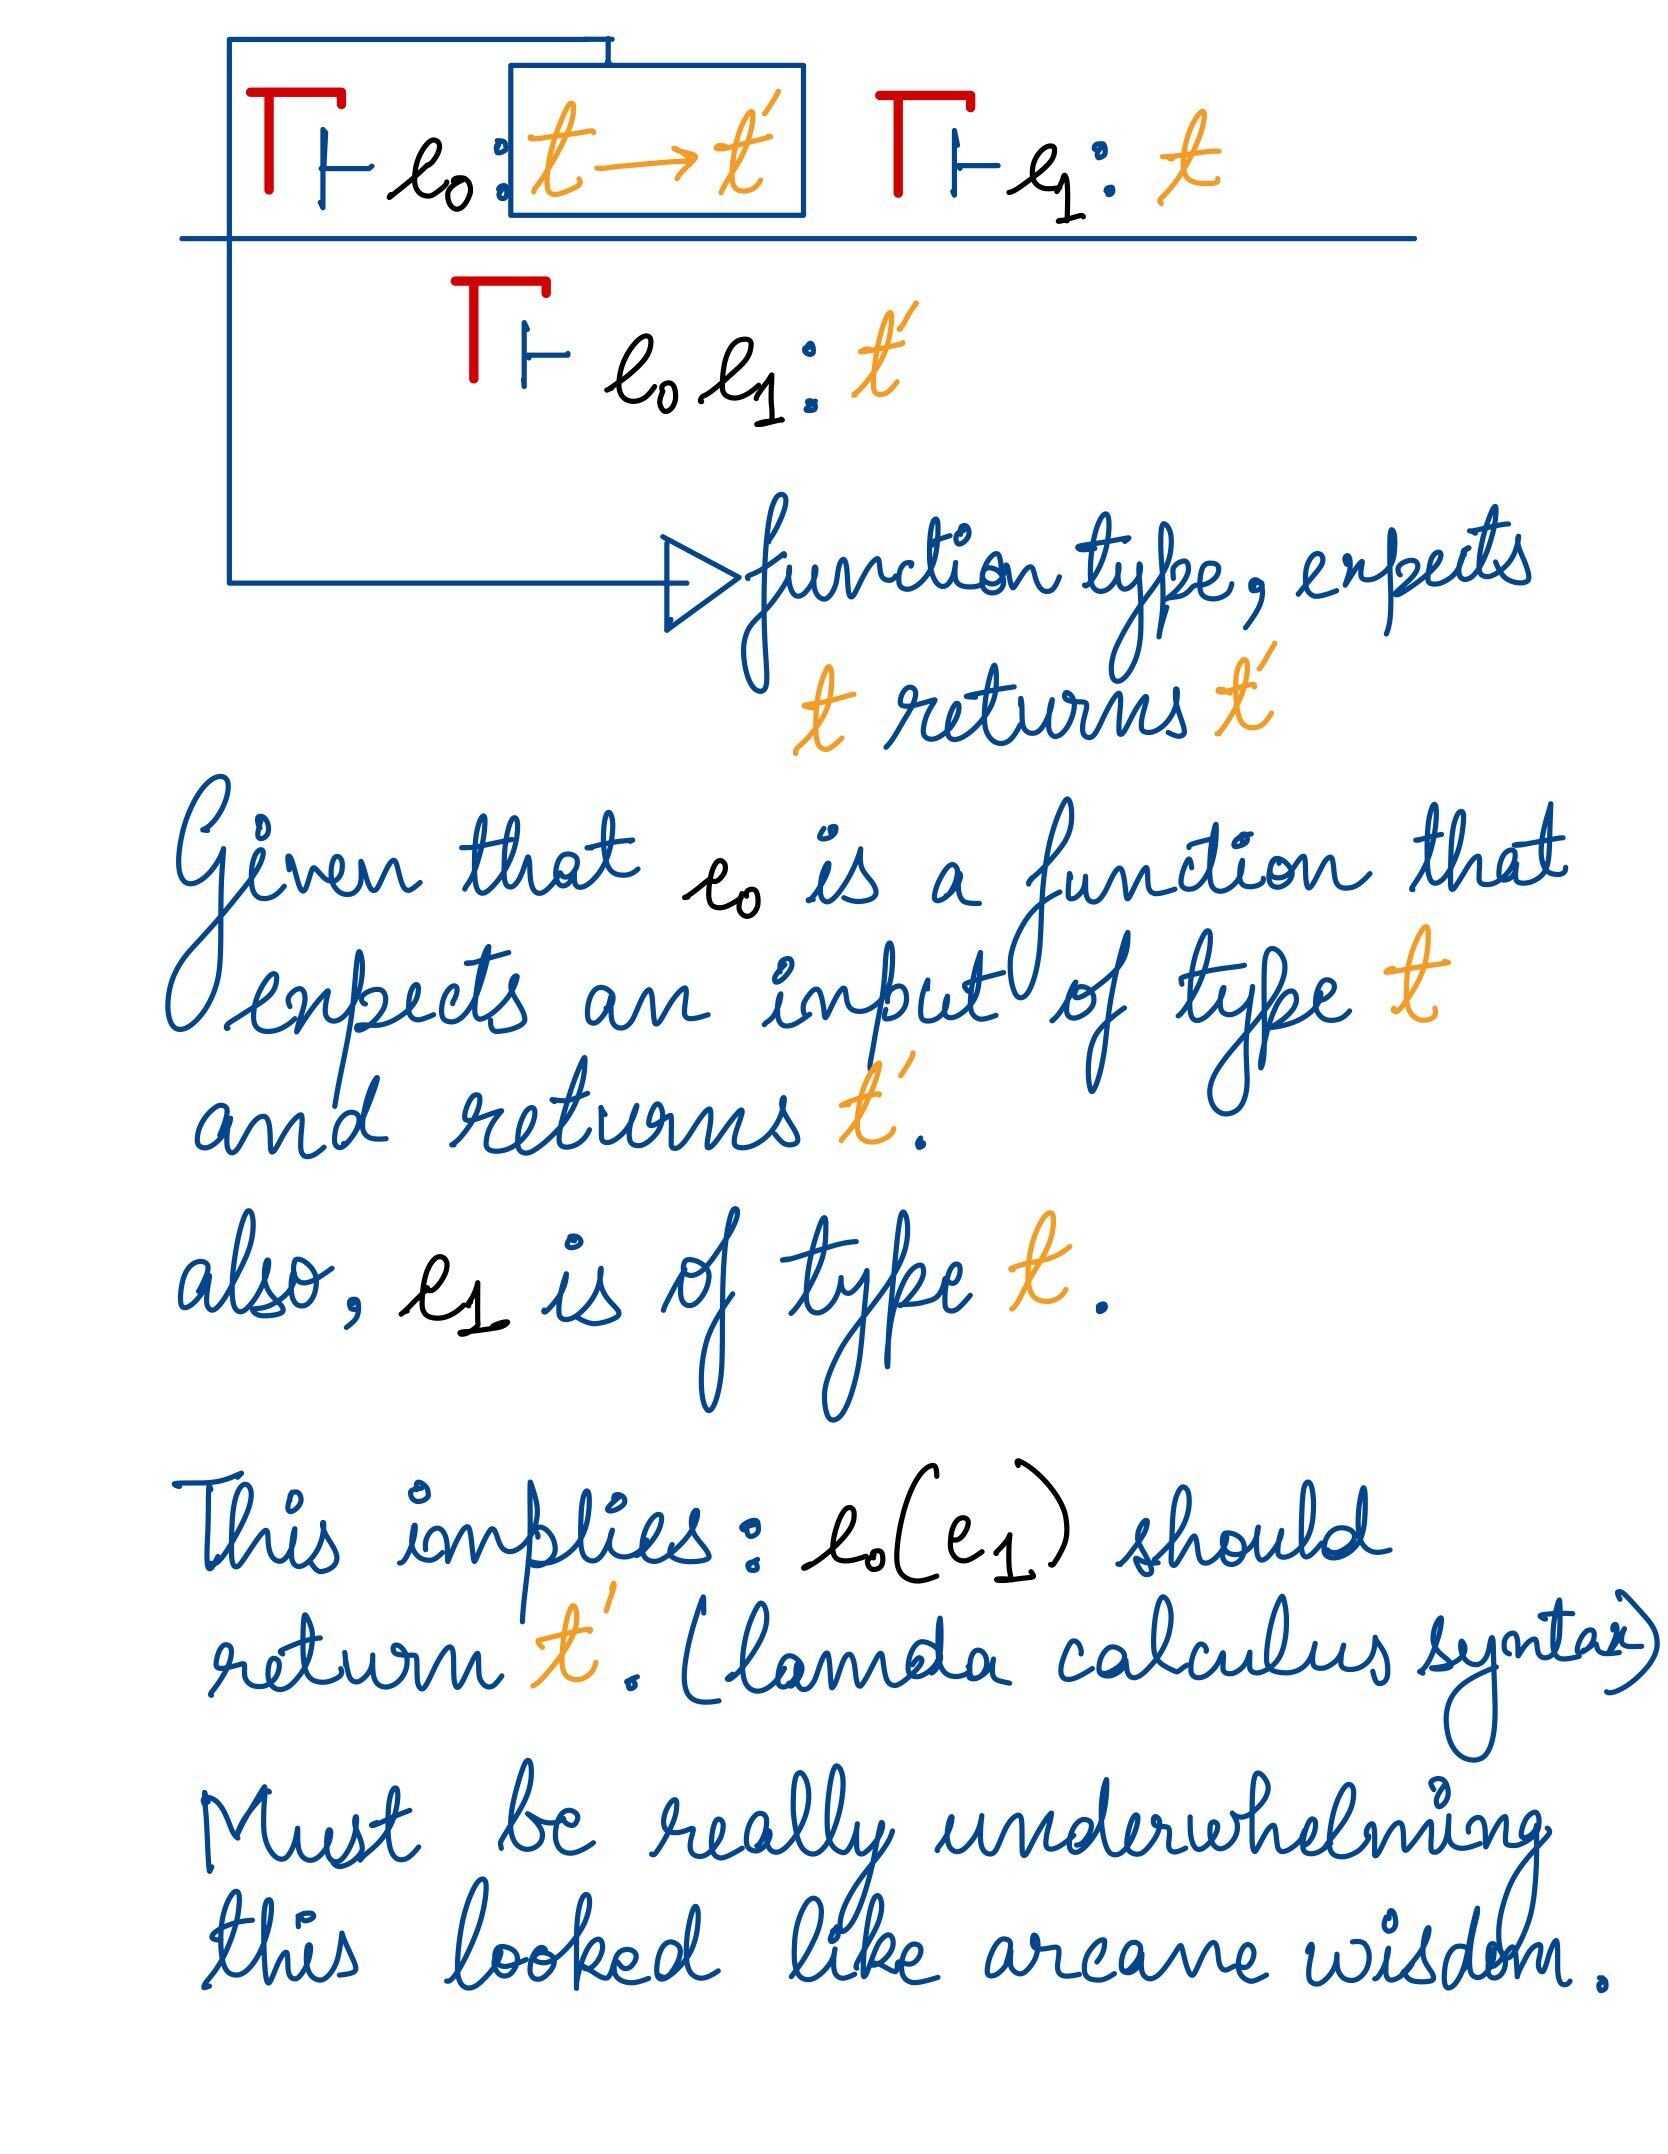 Γ ⊢ e₀ : t → t′   Γ ⊢ e₁ : t
Γ ⊢ e₀ e₁ : t′
function type, expects
t returns t′
Given that e₀ is a function that
expects an input of type t
and returns t′.
also, e₁ is of type t.
This implies: e₀(e₁) should
return t′. (lamda calculus syntax)
Must be really underwhelming
this looked like arcane wisdom.